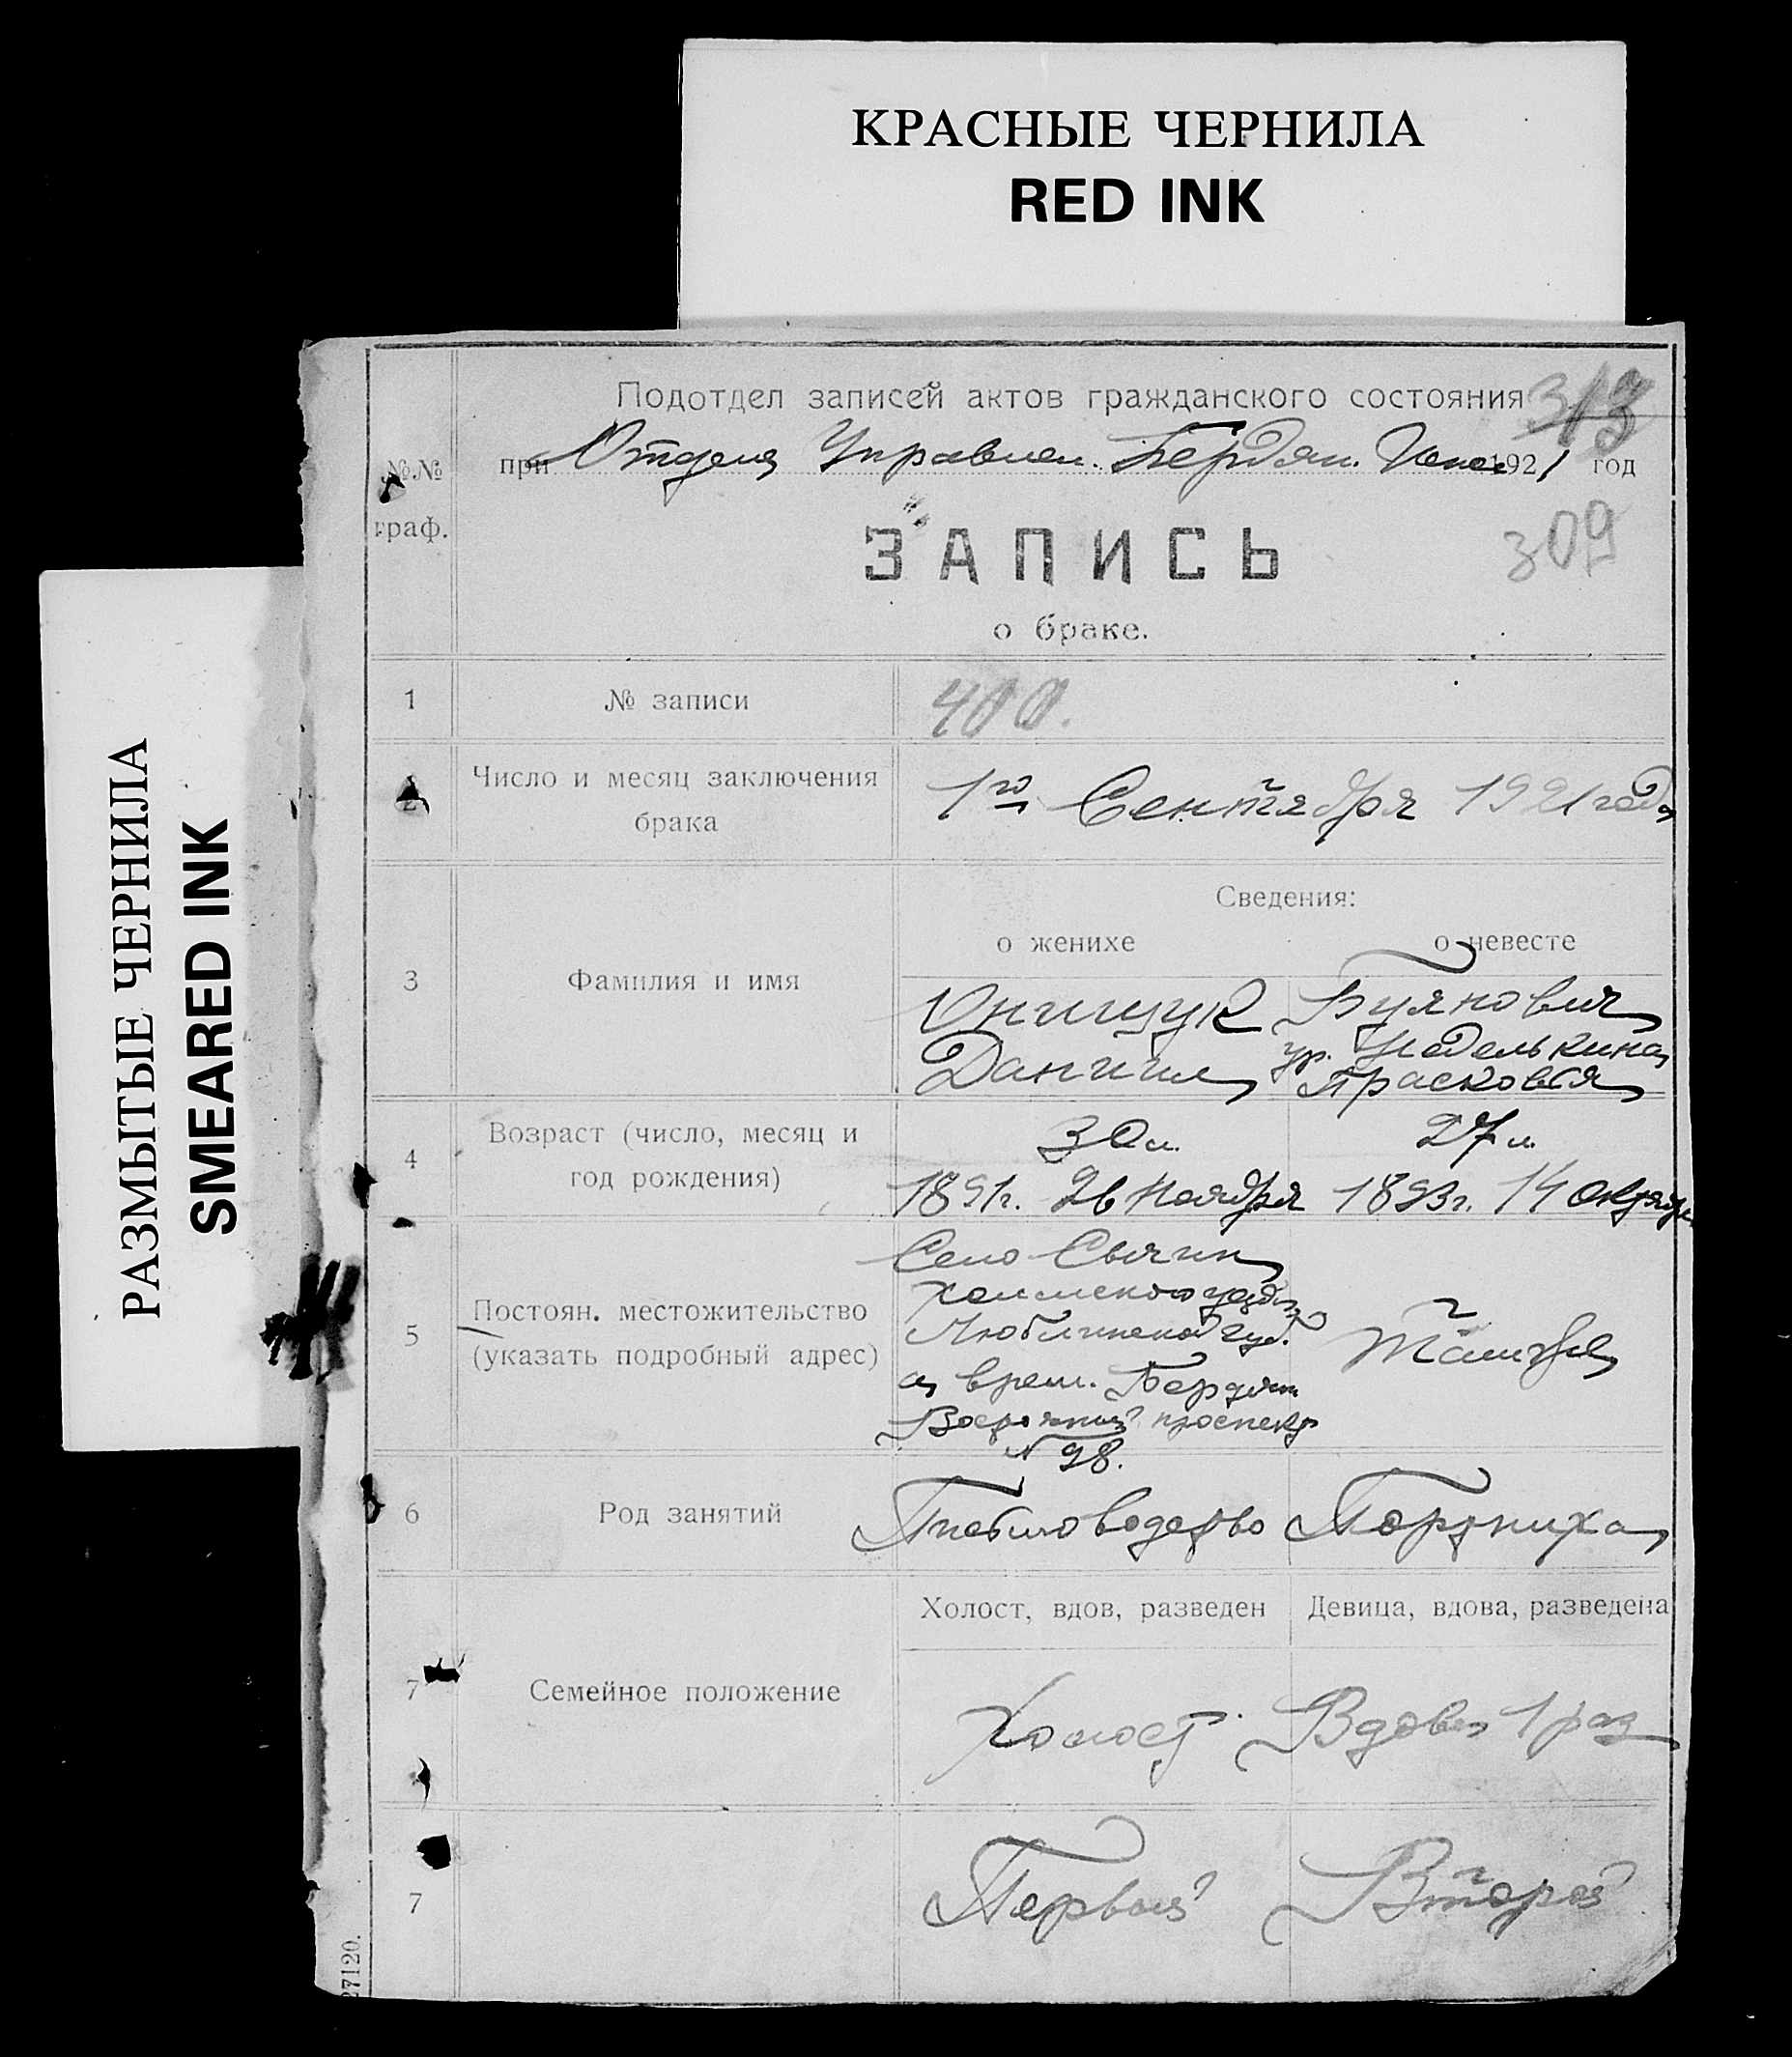 КРАСНЫЕ ЧЕРНИЛА
RED INK
РАЗМЫТЫЕ ЧЕРНИЛА
SMEARED INK
Подотдел записей актов гражданского состояния 313
№№ граф.
при Отдела Управлен. Бердян. 1921 год
309
ЗАПИСЬ
о браке.
1 № записи 400.
2 Число и месяц заключения
брака
1го Сентября 1921 года
Сведения:
о женихе о невесте
3 Фамилия и имя
Онищук Буянович
ур. Неделькина
Даниил Прасковья
4 Возраст (число, месяц и
год рождения)
30 л. 27 л.
1891г. 26 Ноября 1893г. 14 октября
5 Постоян. местожительство
(указать подробный адрес)
Село
Холмского уезда
Люблинской губ.
а врем. Бердянск
Восточный проспект
№ 98.
6 Род занятий
Портниха
Холост, вдов, разведен Девица, вдова, разведена
7 Семейное положение
Холост. Вдова 1 раз
7 Первый Второй
27120.